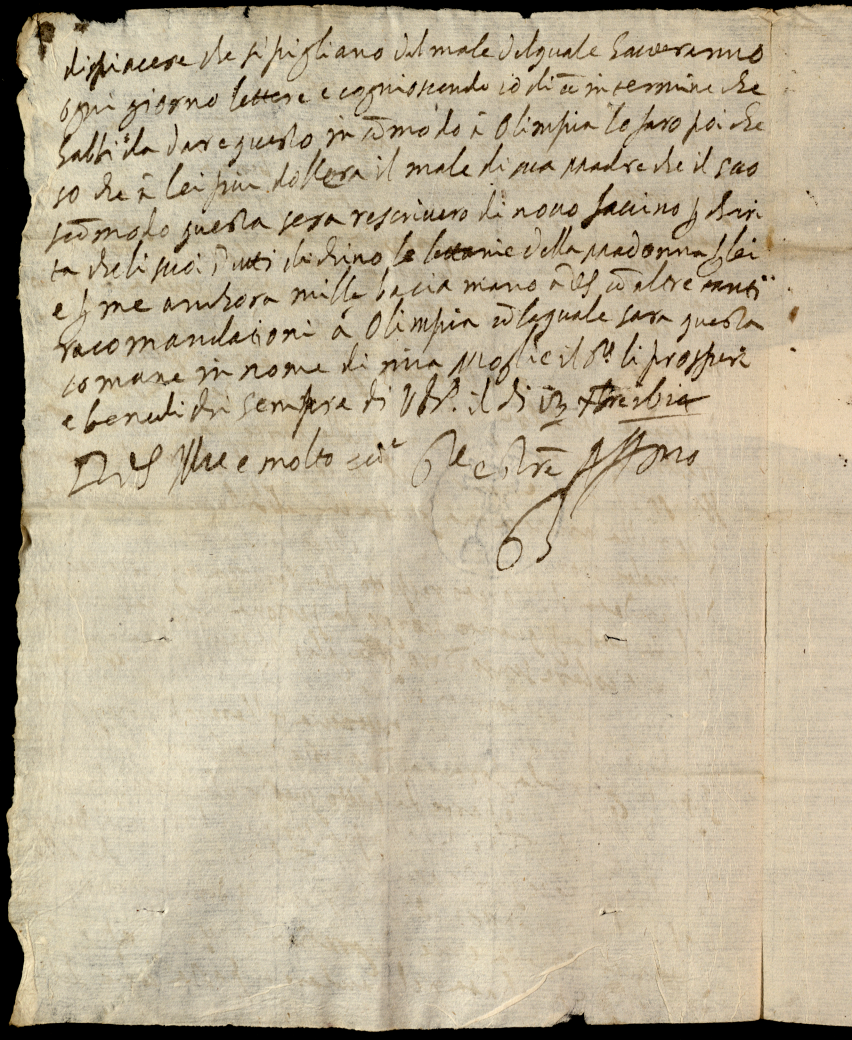 dispiacere che si pigliano del male del quale haveranno
ogni giorno lettere e cognioscendo io di in termine che
habbi da dare questo incōmodo à Olimpia lo faro poi che
so che à lei piu dollera il male di sua Madre che il suo
scōmodo questa sera rescrivero di novo faccino ꝑ chari
ta che li suoi Putti dichino le lettanie della Madonna ꝑ lei
e ꝑ me anchora mille bacia mano à cō altre tanti
racomandacioni à Olimpia cō la quale sara questa
comune in nome di mia Moglie il Sr. li prosperi
e benedichi sempre di il di 13
Di VS Ill.re e molto